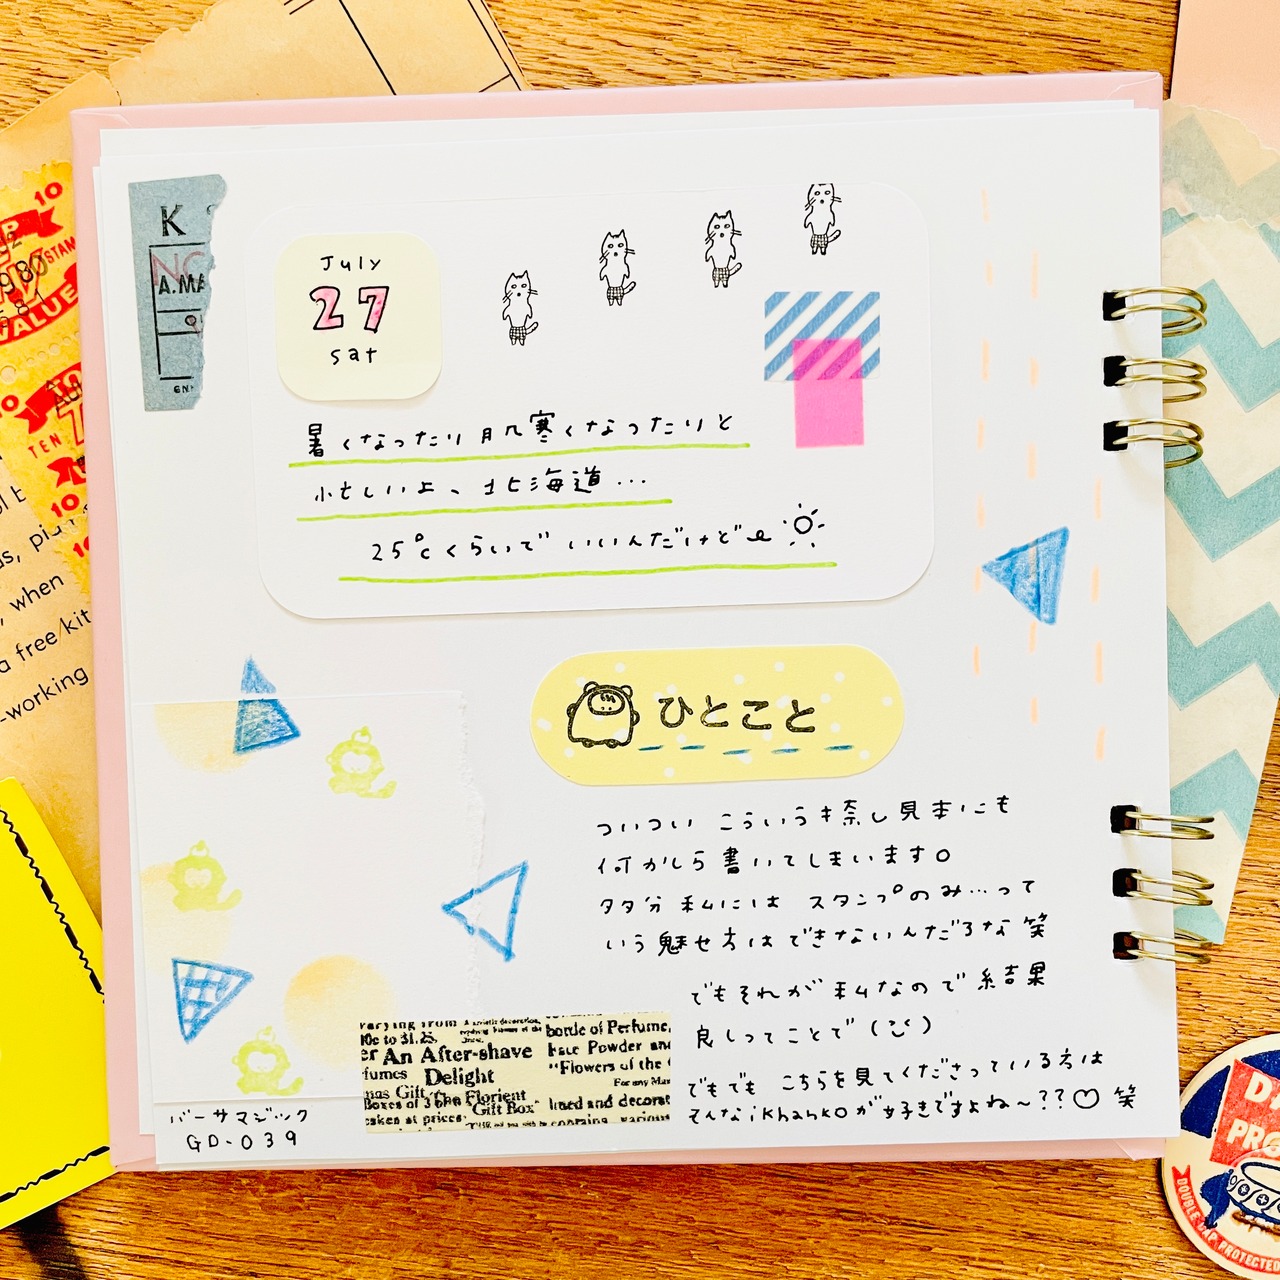 10
STAMP
1980
VALUE
10
TEN
10
10
when
a free kit
-working
K
NC
A.MA
July
27
sat
暑くなったり肌寒くなったりと
忙しいよ、北海道...
25℃くらいで いいんだけど
ひとこと
ついつい こういう捺し見本にも
何かしら書いてしまいます。
多分 私には スタンプのみ…って
いう魅せ方はできないんだろな 笑
でもそれが私なので結果
良しってことで
でもでも こちらを見てくださっている方は
そんなikhankoが好きですよね〜??♡ 笑
varying from
10c to $1.25.
er An After-shave
fumes Delight
mas Gift The Florient
Boxes of 3 Gift Box"
cakes at prices
bottle of Perfume,
Face Powder and
"Flowers of the
For any Man
lined and decorat
containing various
バーサマジック
GD-039
DOUBLE CAP PROTECTED